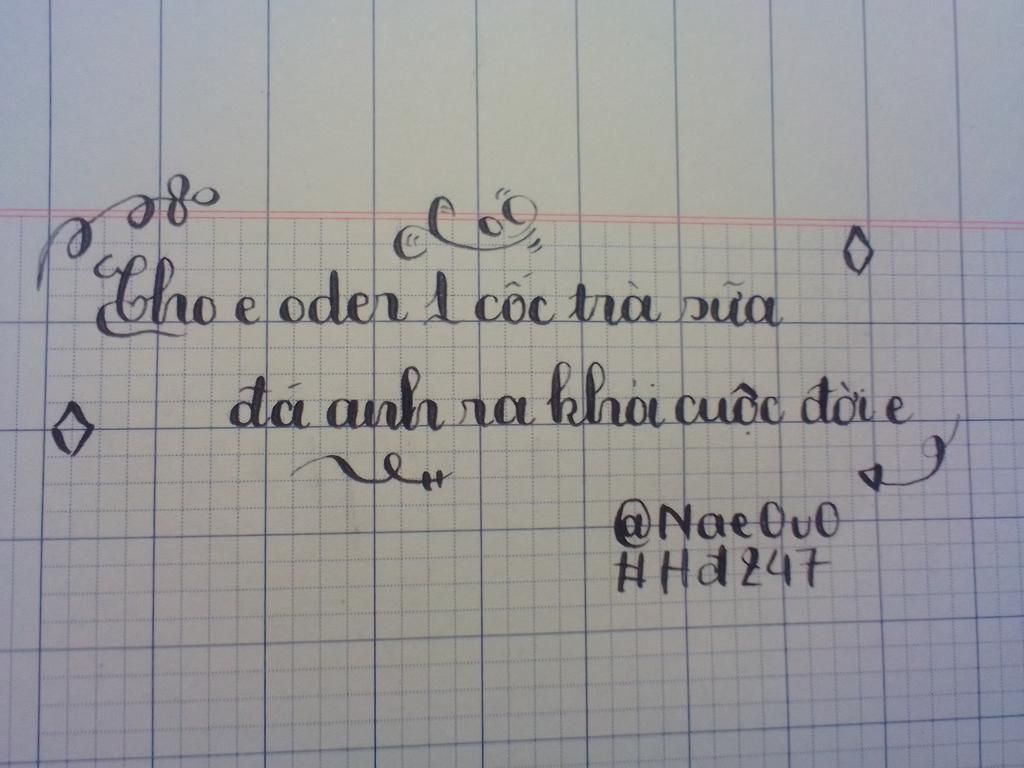 Cho e oder 1 cốc trà sữa
đá anh ra khỏi cuộc đời e
@Nae0v0
#Hd247